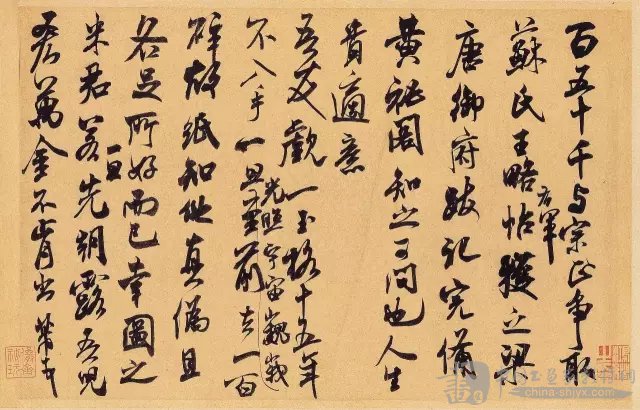 百五十千与宗正争取
蘇氏王略帖右軍獲之梁
唐御府跋記完備
黄秘閣知之可問也人生
貴適意
吾友覷一玉格十五年
不入手一旦光照宇宙巍峩至前去一百
碎故紙知他真偽且
各足所好而已幸圖之
米君若一旦先朝露吾兒
吝萬金不肯出芾頓首
china-shiyx.com